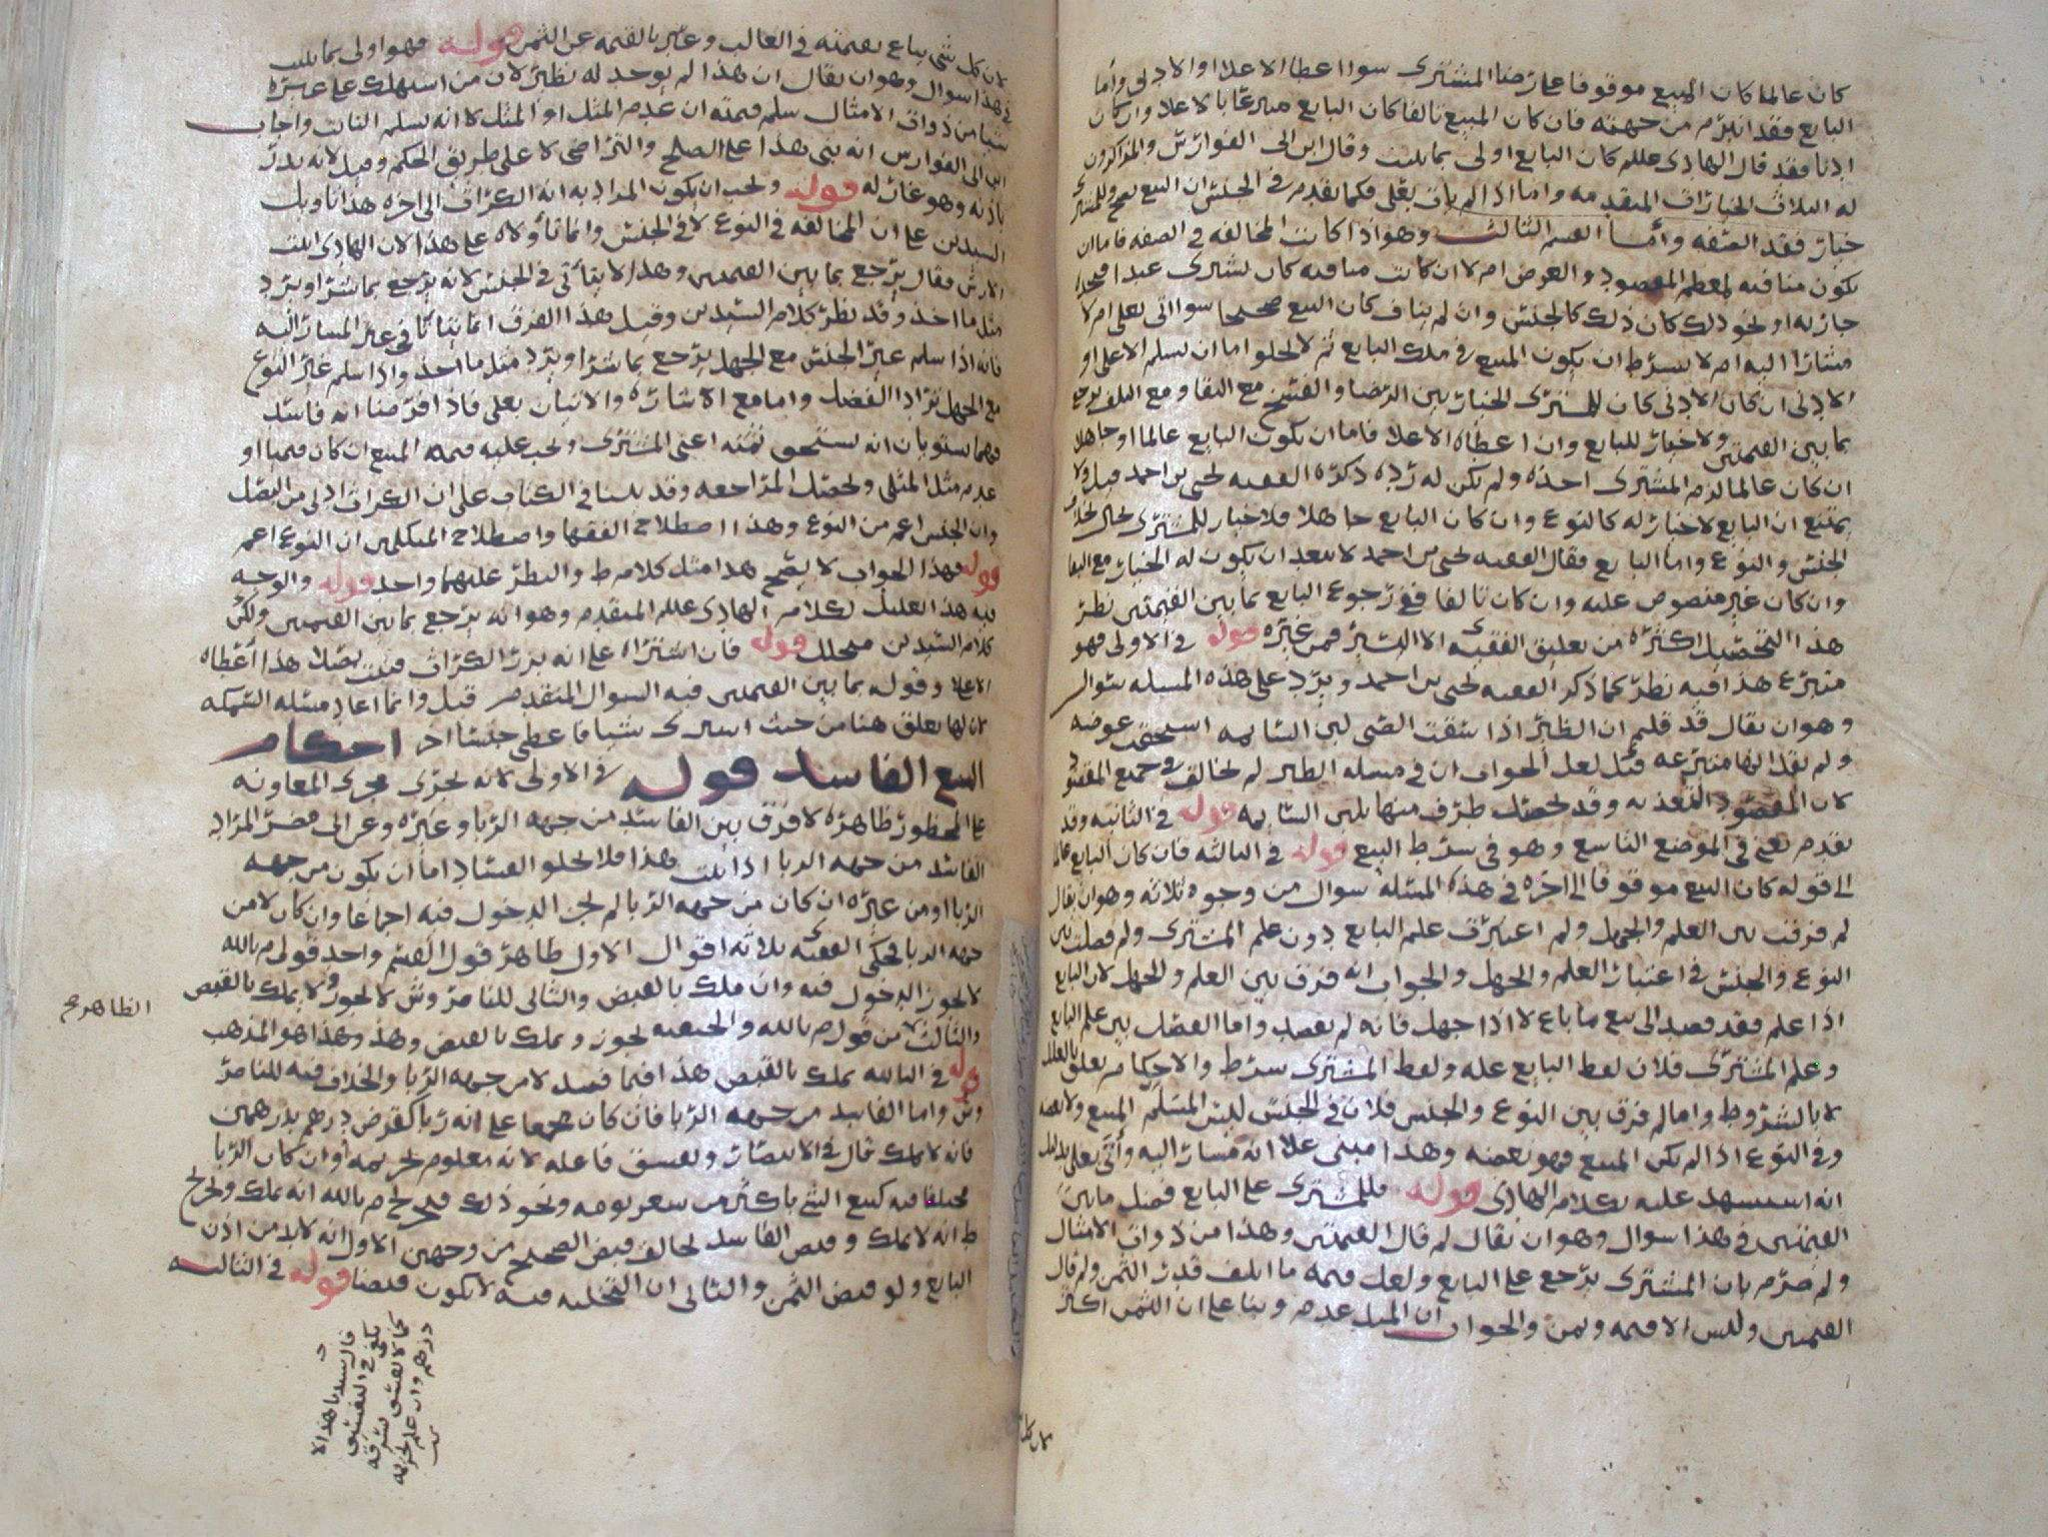 كان عالما كان المبيع موقوفا على رضا المشترى سوا اعطا الاعلا او الادنى واما
البايع فقد انبرم من جهته فان كان المبيع تالفا كان البايع متبرعا بالاعلا وان كان
ادنا فقد قال الهادى علىلم كان البايع اولى بما سلم وقال ابن ابى الفوارس والمذاكرون
له الثلاث الخيارات المتقدمه واما اذا لم يات بعلى فكما تقدم فى الجنس ان البيع يصح وللمشترى
خيار فقد الصفه وأما القسم الثالث وهو اذا كانت المخالفه فى الصفه فاما ان
يكون منافيه لمعظم المقصود والغرض ام لا ان كانت منافيه كان يشترى عبدا
جاريه او نحو ذلك كان ذلك كالجنس وان لم يناف كان البيع صحيحا سوا اتى بعلى ام لا
مشارا اليه ام لا بشرط ان يكون المبيع فى ملك البايع ثم لا يخلو اما ان يسلم الاعلى او
الادنى ان كان الادنى كان للمشترى الخيار بين الرضا والفسخ مع البقا ومع التلف يرجع
بما بين القيمتين ولا خيار للبايع وان اعطاه الاعلا فاما ان يكون البايع عالما او جاهلا
ان كان عالما لزم المشترى اخذه ولم يكن له رده ذكره الفقيه يحيى بن احمد قيل ولا
يمتنع ان البايع لا خيار له كالنوع وان كان البايع جاهلا فلا خيار للمشترى
الجنس والنوع واما البايع فقال الفقيه يحيى بن احمد لا يبعد ان يكون له الخيار مع البقا
وان كان غير منصوص عليه وان كان تالفا ففى رجوع البايع بما بين القيمتين نظر
هذا التحصيل اكثره من تعليق الفقيه الا اليسير فمن غيره قوله فى الاولى فهو
متبرع هذا فيه نظر كما ذكر الفقيه يحيى بن احمد ويرد على هذه المسله سوال
وهو ان يقال قد قلتم ان الظير اذا سقت الصبى لبن السايمه استحقت عوضه
ولم يقل انها متبرعه قيل لعل الجواب ان فى مسله الظير لم يخالف فى جميع المقصود
لان المقصود التغذيه وقد يحصل طرف منها بلبن السايمه قوله فى الثانيه وقد
تقدم يعنى فى الموضع التاسع وهو فى شرط البيع قوله فى الثالثه فان كان البايع عالما
الى قوله كان البيع موقوفا الى اخره فى هذه المسئله سوال من وجوه ثلاثه وهو ان يقال
لم فرقت بين العلم والجهل ولم اعتبرت علم البايع دون علم المشترى ولم فصلت بين
النوع والجنس فى اعتبار العلم والجهل والجواب انه فرق بين العلم والجهل لان البايع
اذا علم فقد قصد الى بيع ما باع لا اذا جهل فانه لم يقصد واما الفصل بين علم البايع
وعلم المشترى فلان لفظ البايع عله ولفظ المشترى شرط والاحكام تعلق بالعلل
لا بالشروط واما لم فرق بين النوع والجنس فلان فى الجنس ليس المسلم المبيع ولا بعضه
وفى النوع اذا لم يكن المبيع فهو بعضه وهذا مبنى على انه مشار اليه وأتى بعلى بدليل
انه استشهد عليه بكلام الهادى قوله فللمشترى على البايع فضل ما بين
القيمتين فى هذا سوال وهو ان يقال لم قال القيمتين وهذا من ذوات الامثال
ولم صرم بان المشترى يرجع على البايع ولعل قيمه ما اتلف قدر الثمن ولم قال
القيمتين وليس الا قيمه وثمن والجواب ان المثل عدم وبنا على ان الثمن اكثر
كان كل
لان كل شى يباع بقيمته فى الغالب وعبر بالقيمه عن الثمن قوله فهو اولى بما سلم
فى هذا سوال وهو ان يقال ان هذا لم يوجد له نظير لان من استهلك على غيره
شيا من ذوات الامثال سلم قيمته ان عدم المثل او المثل لا انه يسلم الثابت واجاب
ابن ابى الفوارس انه بنى هذا على الصلح والتراضى لا على طريق الحكم وقيل لانه بذر
باذنه وهو غار له قوله ويجب ان يكون المراد به انه الكراث الى اخره هذا تاويل
السيدين على ان المخالفه فى النوع لا فى الجنس وانما تأولاه على هذا لان الهادى اثبت
الارش فقال يرجع بما بين القيمتين وهذا لا يتأتى فى الجنس لانه يرجع بما شرا او يرد
مثل ما اخذ وقد نظر كلام السيدين وقيل هذا الفرق انما يتاتا فى غير المشار اليه
فانه اذا سلم غير الجنس مع الجهل يرجع بما شرا ويرد مثل ما اخذ واذا سلم غير النوع
مع الجهل ترادا الفضل واما مع الاشاره والاتيان بعلى فاذا فرضنا انه فاسد
فهما يستويان انه يستحق ثمنه اعنى المشترى ويجب عليه قيمه المبيع ان كان قيميا او
عدم مثل المثلى ويحصل المراجعه وقد بينا فى الكتاب على ان الكراث ادنى من البصل
وان الجنس اعم من النوع وهذا اصطلاح الفقها واصطلاح المتكلمين ان النوع اعم
قوله فهذا الجواب لا يصح هذا مثل كلام ط والنظر عليهما واحد قوله والوجه
فيه هذا التعليل لكلام الهادى علىلم المتقدم وهو انه يرجع بما بين القيمتين ولكن
كلام السيدين قوله فان اشتراه على انه بزر الكراث فنبت بصلا هذا أعطاه
الاعلا وقوله بما بين القيمتين فيه السوال المتقدم قيل وانما اعاد مسئله السمكه
لان لها تعلق هنا من حيث اشترى شيا فاعطى جنسا اخر احكام
البيع الفاسد قوله فى الاولى لانه يجرى مجرى المعاونه
على المحظور ظاهره لا فرق بين الفاسد من جهه الربا وغيره وعن ابى مضر المراد
الفاسد من جهه الربا اذا ثبت هذا فلا يخلو الفساد اما ان يكون من جهه
الربا او من غيره ان كان من جهه الربا لم يجز الدخول فيه اجماعا وان كان لا من
جهه الربا فحكى الفقيه ثلاثه اقوال الاول ظاهر قول القسم واحد قولى م بالله
لا يجوز الدخول فيه وان ملك بالقبض والثانى للناصر وش لا يجوز ولا يملك بالقبض
والثالث من قول م بالله والحنفيه يجوز ويملك بالقبض وهذا هو المذهب
الظاهر صح
قوله فى الثالثه يملك بالقبض هذا فيما فسد لا من جهه الربا والخلاف فيه للناصر
وش واما الفاسد من جهه الربا فان كان مجمعا على انه ربا كقرض درهم بدرهمين
فانه لا يملك قال فى الانتصار ويفسق فاعله لانه معلوم تحريمه وان كان الربا
مختلفا فيه كبيع الشى باكثر من سعر يومه ونحو ذلك فخرج م بالله انه يملك وخرج
ط انه لا يملك وقبض الفاسد يخالف قبض الصحيح من وجهين الاول انه لا بد من اذن
البايع ولو قبض الثمن والثانى ان التخليه فيه لا يكون قبضا قوله فى الثالثه